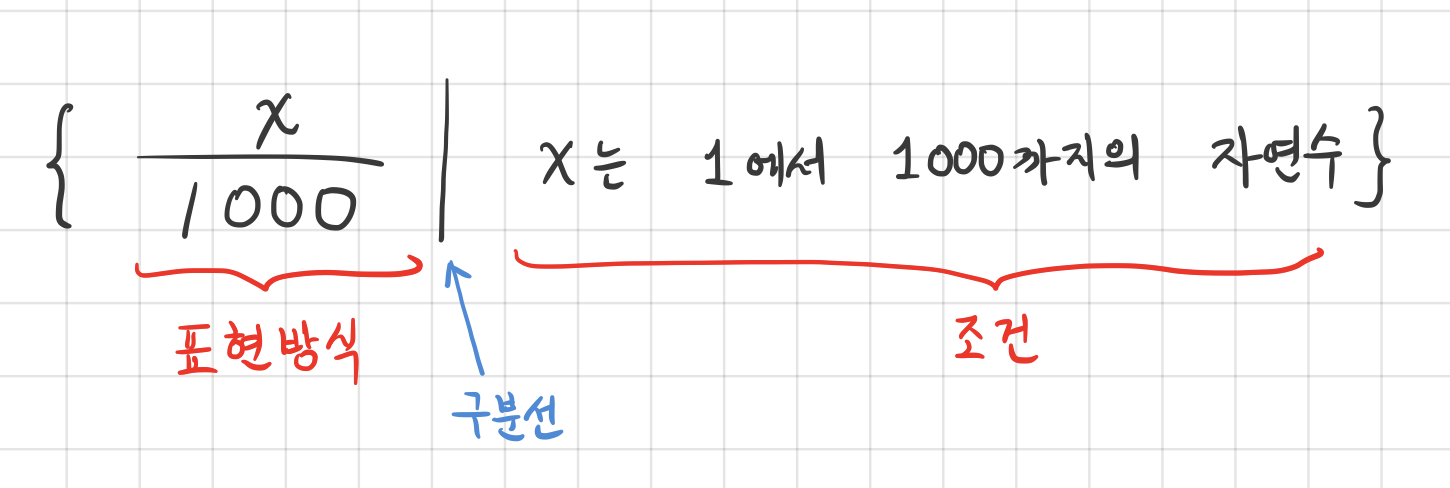 { x/1000 | x는 1에서 1000까지의 자연수 }
표현방식
조건
구분선